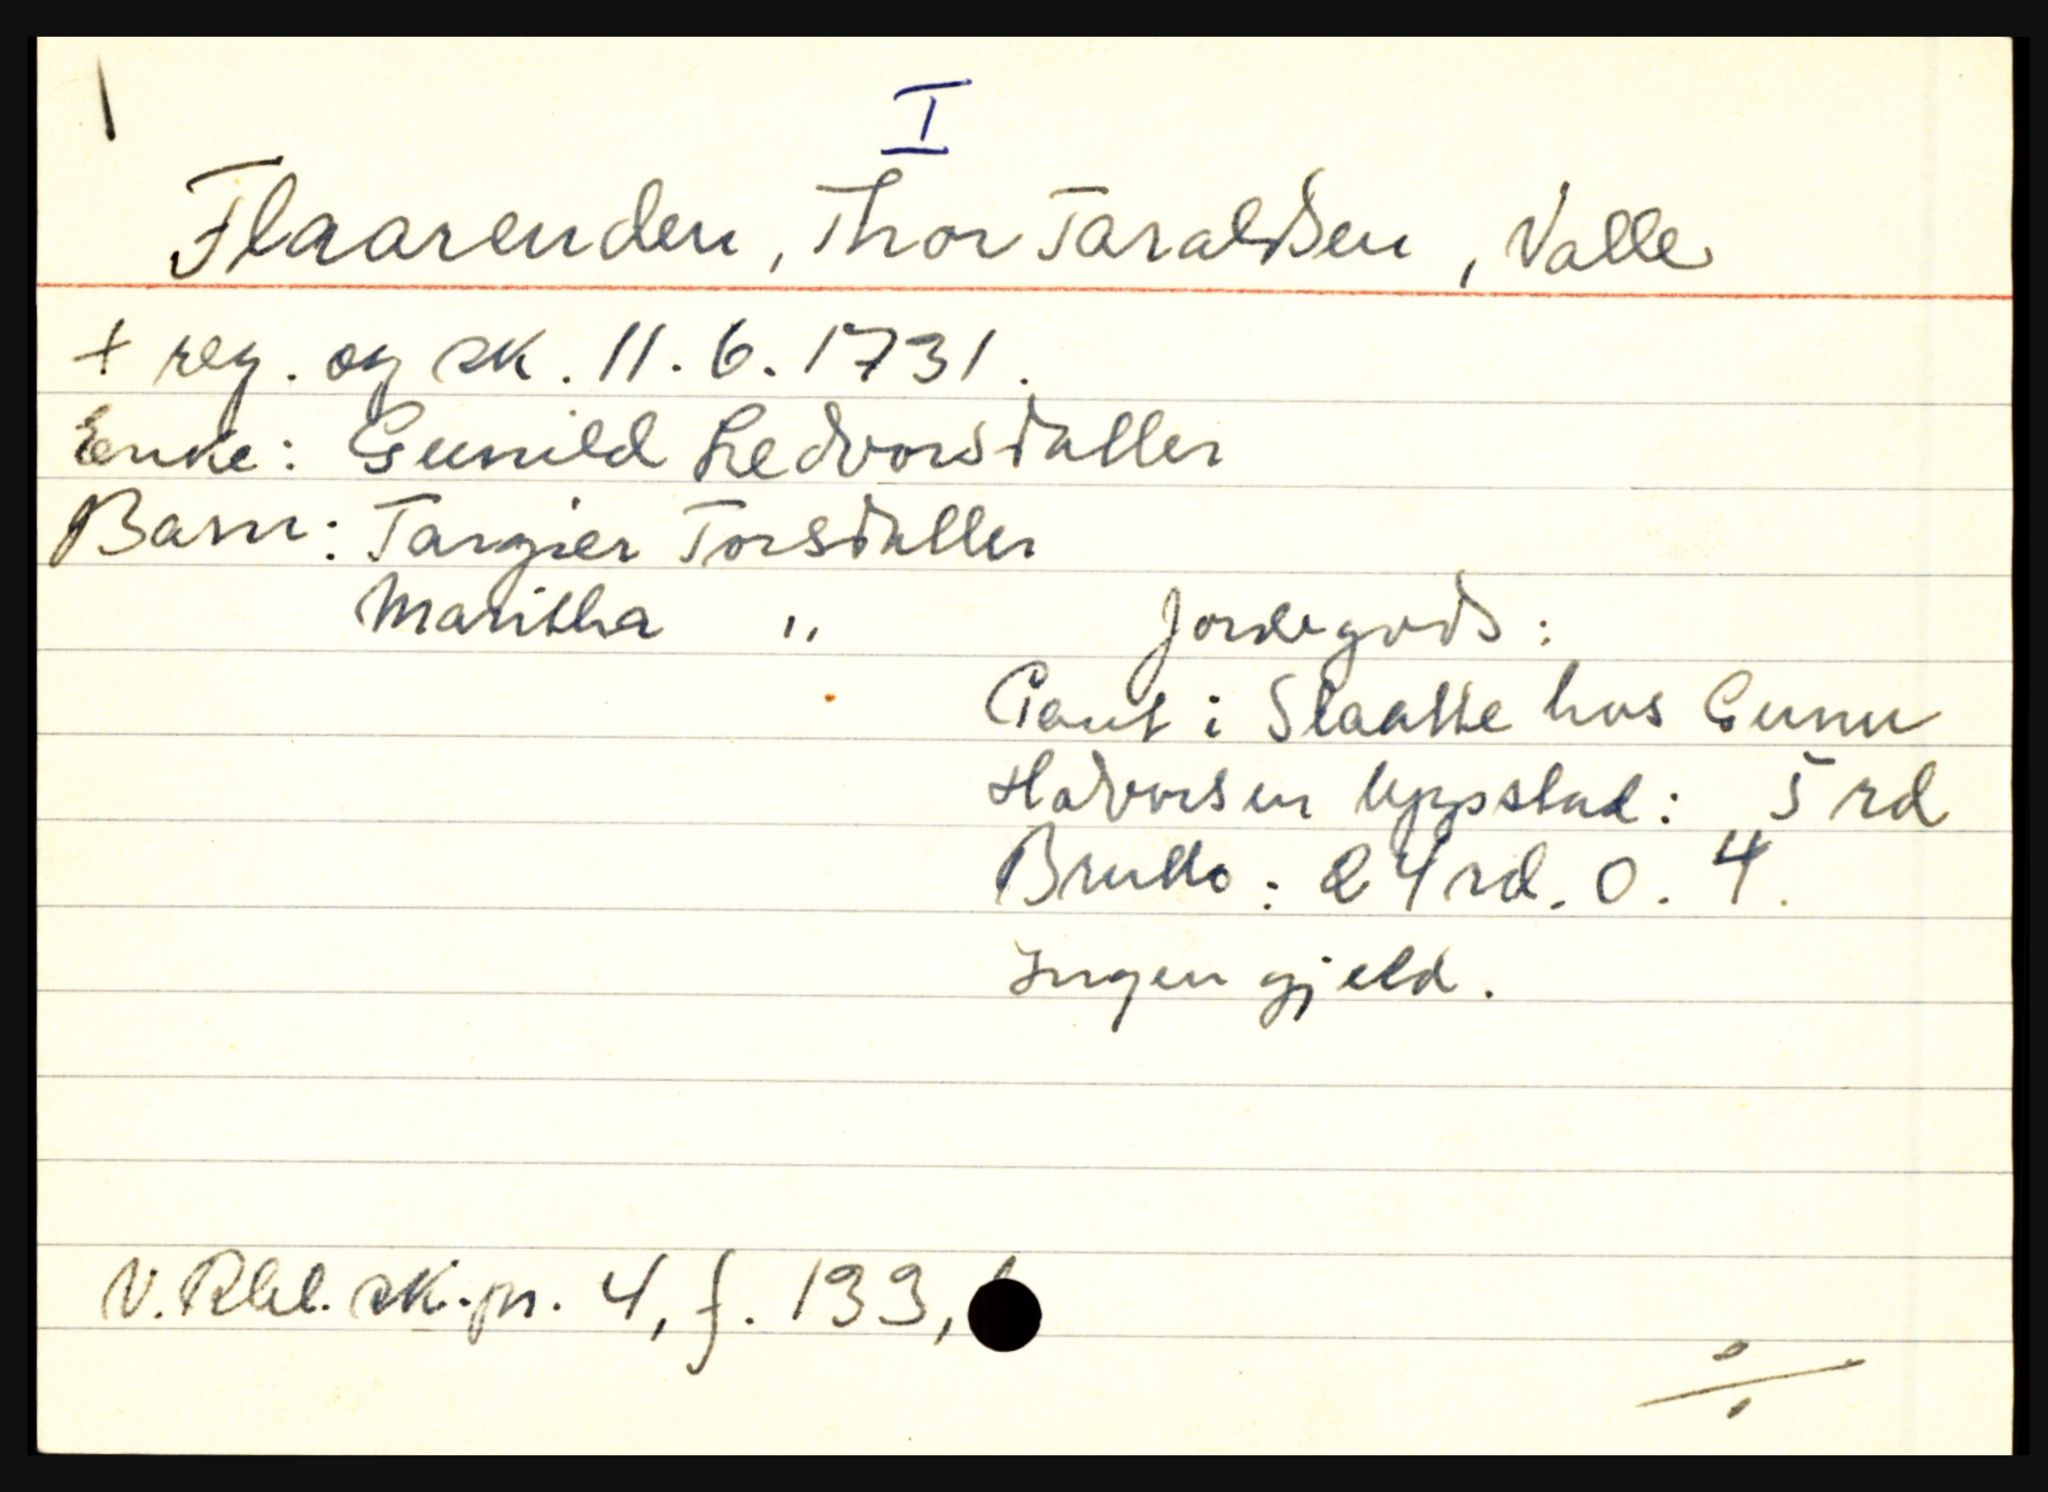 I
Flaarenden, Thor Taraldsen, Valle
+ reg. og sk. 11.6.1731.
Enke: Gunild Ledvorsdatter
Barn: Targier Torsdatter
Maritha "
Jordegods:
Pant i Slaatte hos Gunu
Halvorsen Uppstad: 5 rd
Brutto: 24 rd. 0. 4.
Ingen gjeld.
V. Rbl. sk.pr. 4, f. 133,